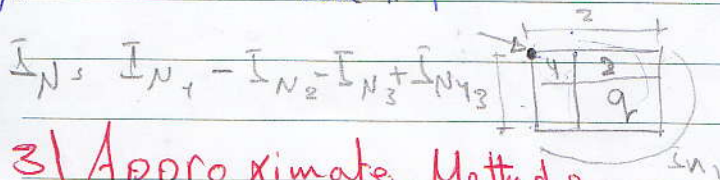 2
I_N = I_N1 - I_N2 - I_N3 + I_N4
4 2
q
3\ Approximate Method